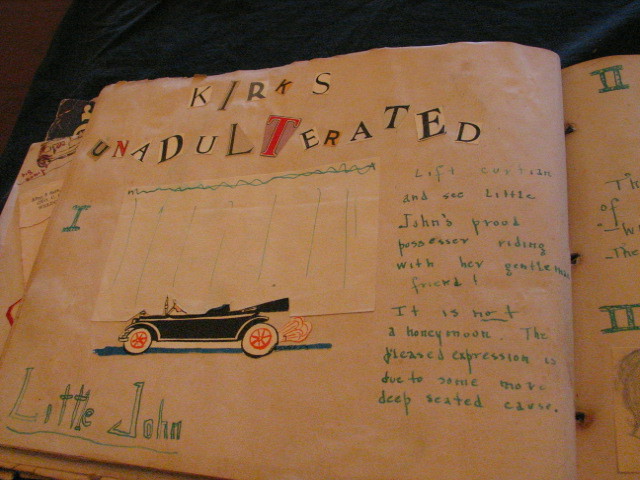 KIRKS
UNADULTERATED
I
Lift curtian
and see Little
John's proud
possesser riding
with her gentleman
friend!
It is not
a honeymoon. The
pleased expression is
due to some more
deep seated cause.
Little John
II
of
The
III